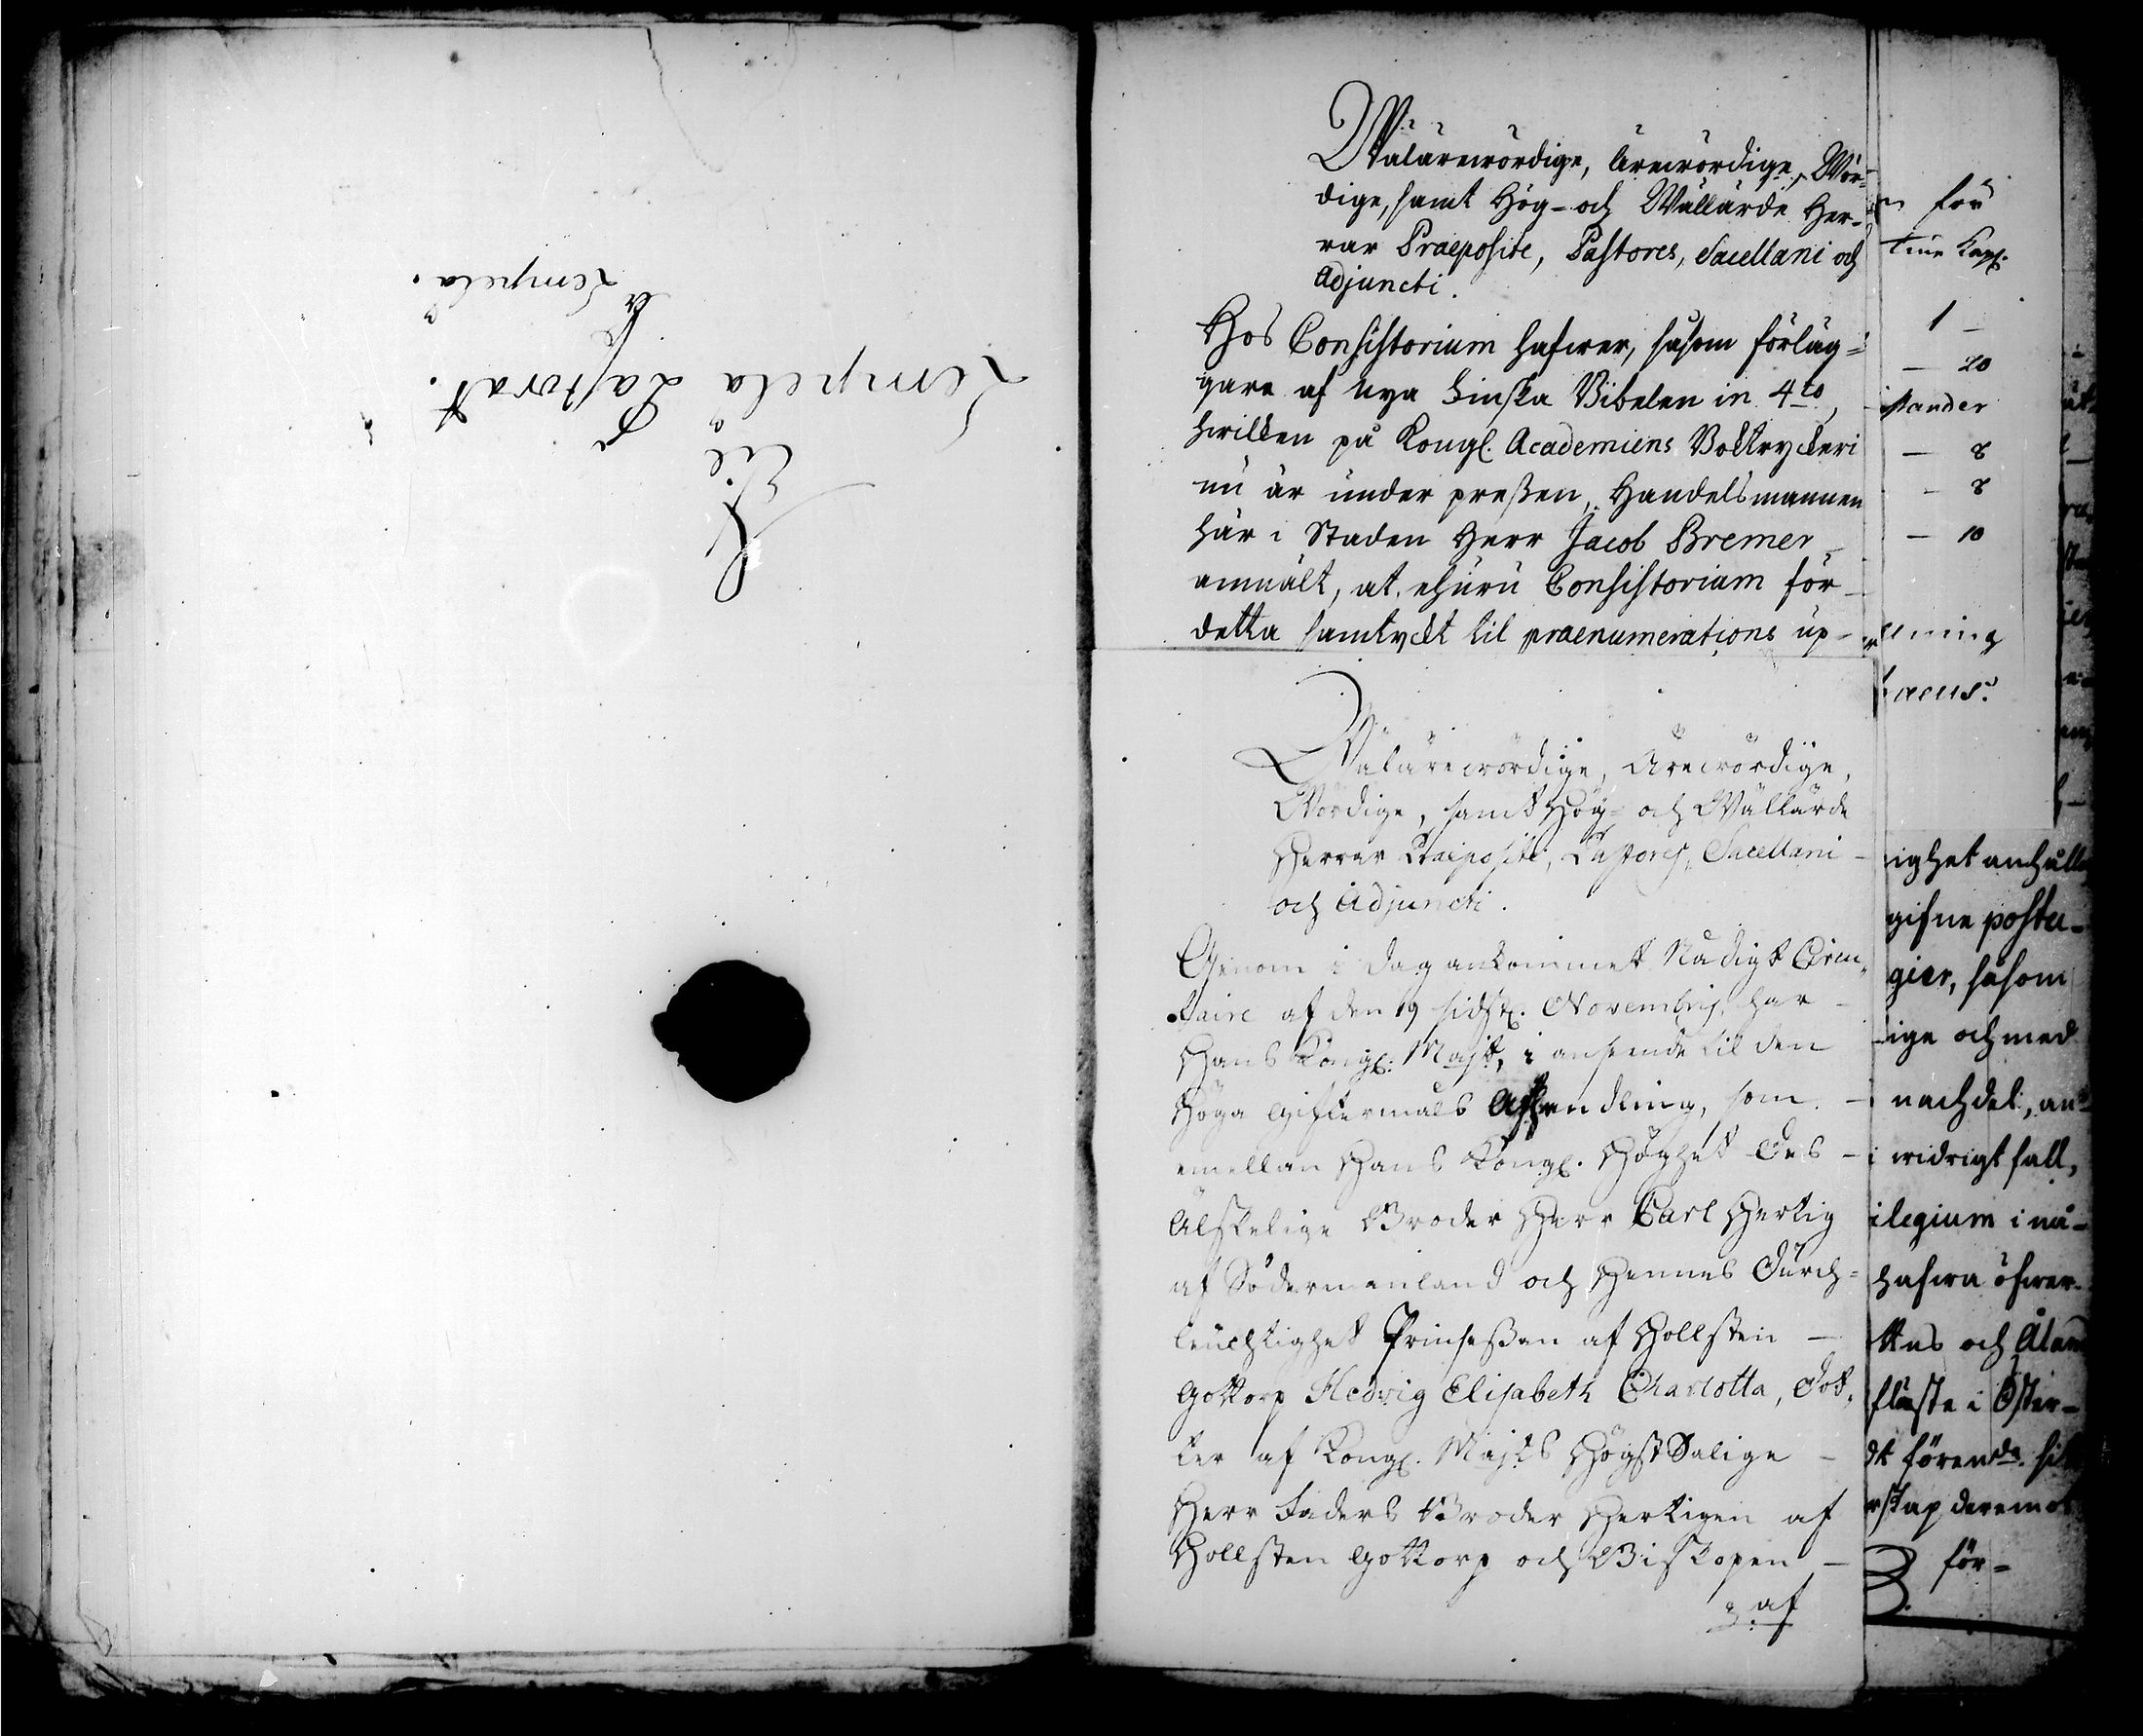 Til
Lempelä Pastorat.
Lempelä.
Wälärewördige, Ärewördige, Wör-
dige, samt Hög- och Wällärde Her-
rar Praeposite, Pastores, Sacellani och
Adjuncti.
Hos Consistorium hafwer, såsom förläg-
gare af nya Finska Bibelen in 4to,
hwilken på Kongl. Academiens Boktryckeri
nu är under preßen, Handelsmannen
här i Staden Herr Jacob Bremer
anmält, at ehuru Consistorium för
detta samtyckt til praenumerations up-
Wälärewördige, Ärewördige,
Wördige, samt Hög- och Wällärde
Herrar Praepositi, Pastores, Sacellani
och Adjuncti.
Genom i dag ankommet Nådigt Circu-
laire af den 19 sidstl. Novembris, har
Hans Kongl. Majt, i anseende til den
Höga Giftermåls Afhandling, som
emellan Hans Kongl. Höghet Des
Älskelige Broder Herr Carl Hertig
af Södermanland och Hennes Durch-
leuchtighet Prinseßan af Hollsten
Gottorp Hedvig Elisabeth Charlotta, Dot-
ter af Kongl. Majts Högst Salige
Herr Faders Broder Hertigen af
Hollsten Gottorp och Biskopen
af
för
1 -
- 20
- 8
- 8
- 10
ighet anhålle
gifne postu-
gier, såsom
ige och med
nachdel, an-
i widrigt fall,
ilegium i nå-
hafwa öfwer-
ttas och Åland
flåste i Öster-
dt förenda. sit
rskap deremot
för-